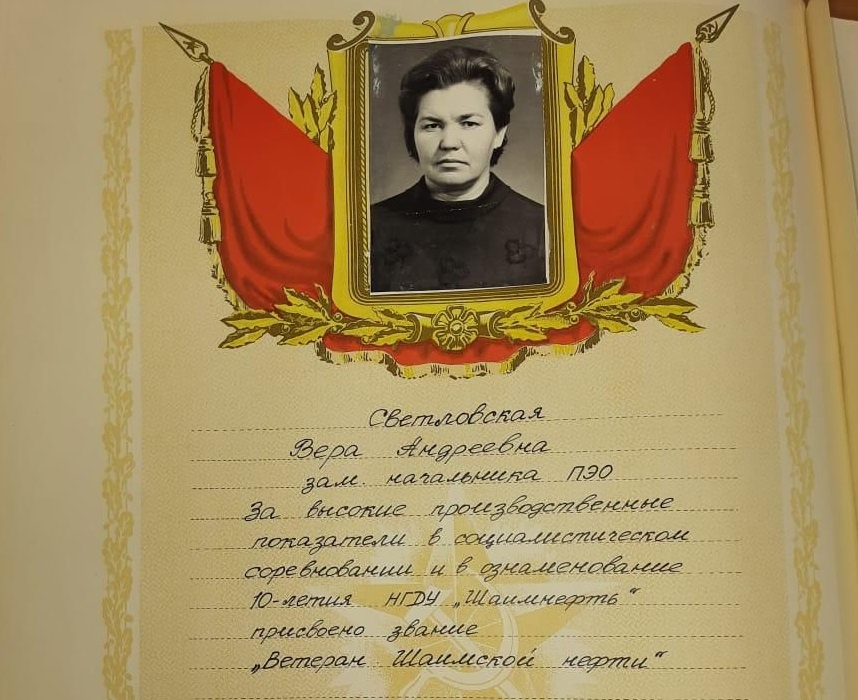 Светловская
Вера Андреевна
зам. начальника ПЭО
За высокие производственные
показатели в социалистическом
соревновании и в ознаменование
10-летия НГДУ „Шаимнефть"
присвоено звание
„Ветеран Шаимской нефти"